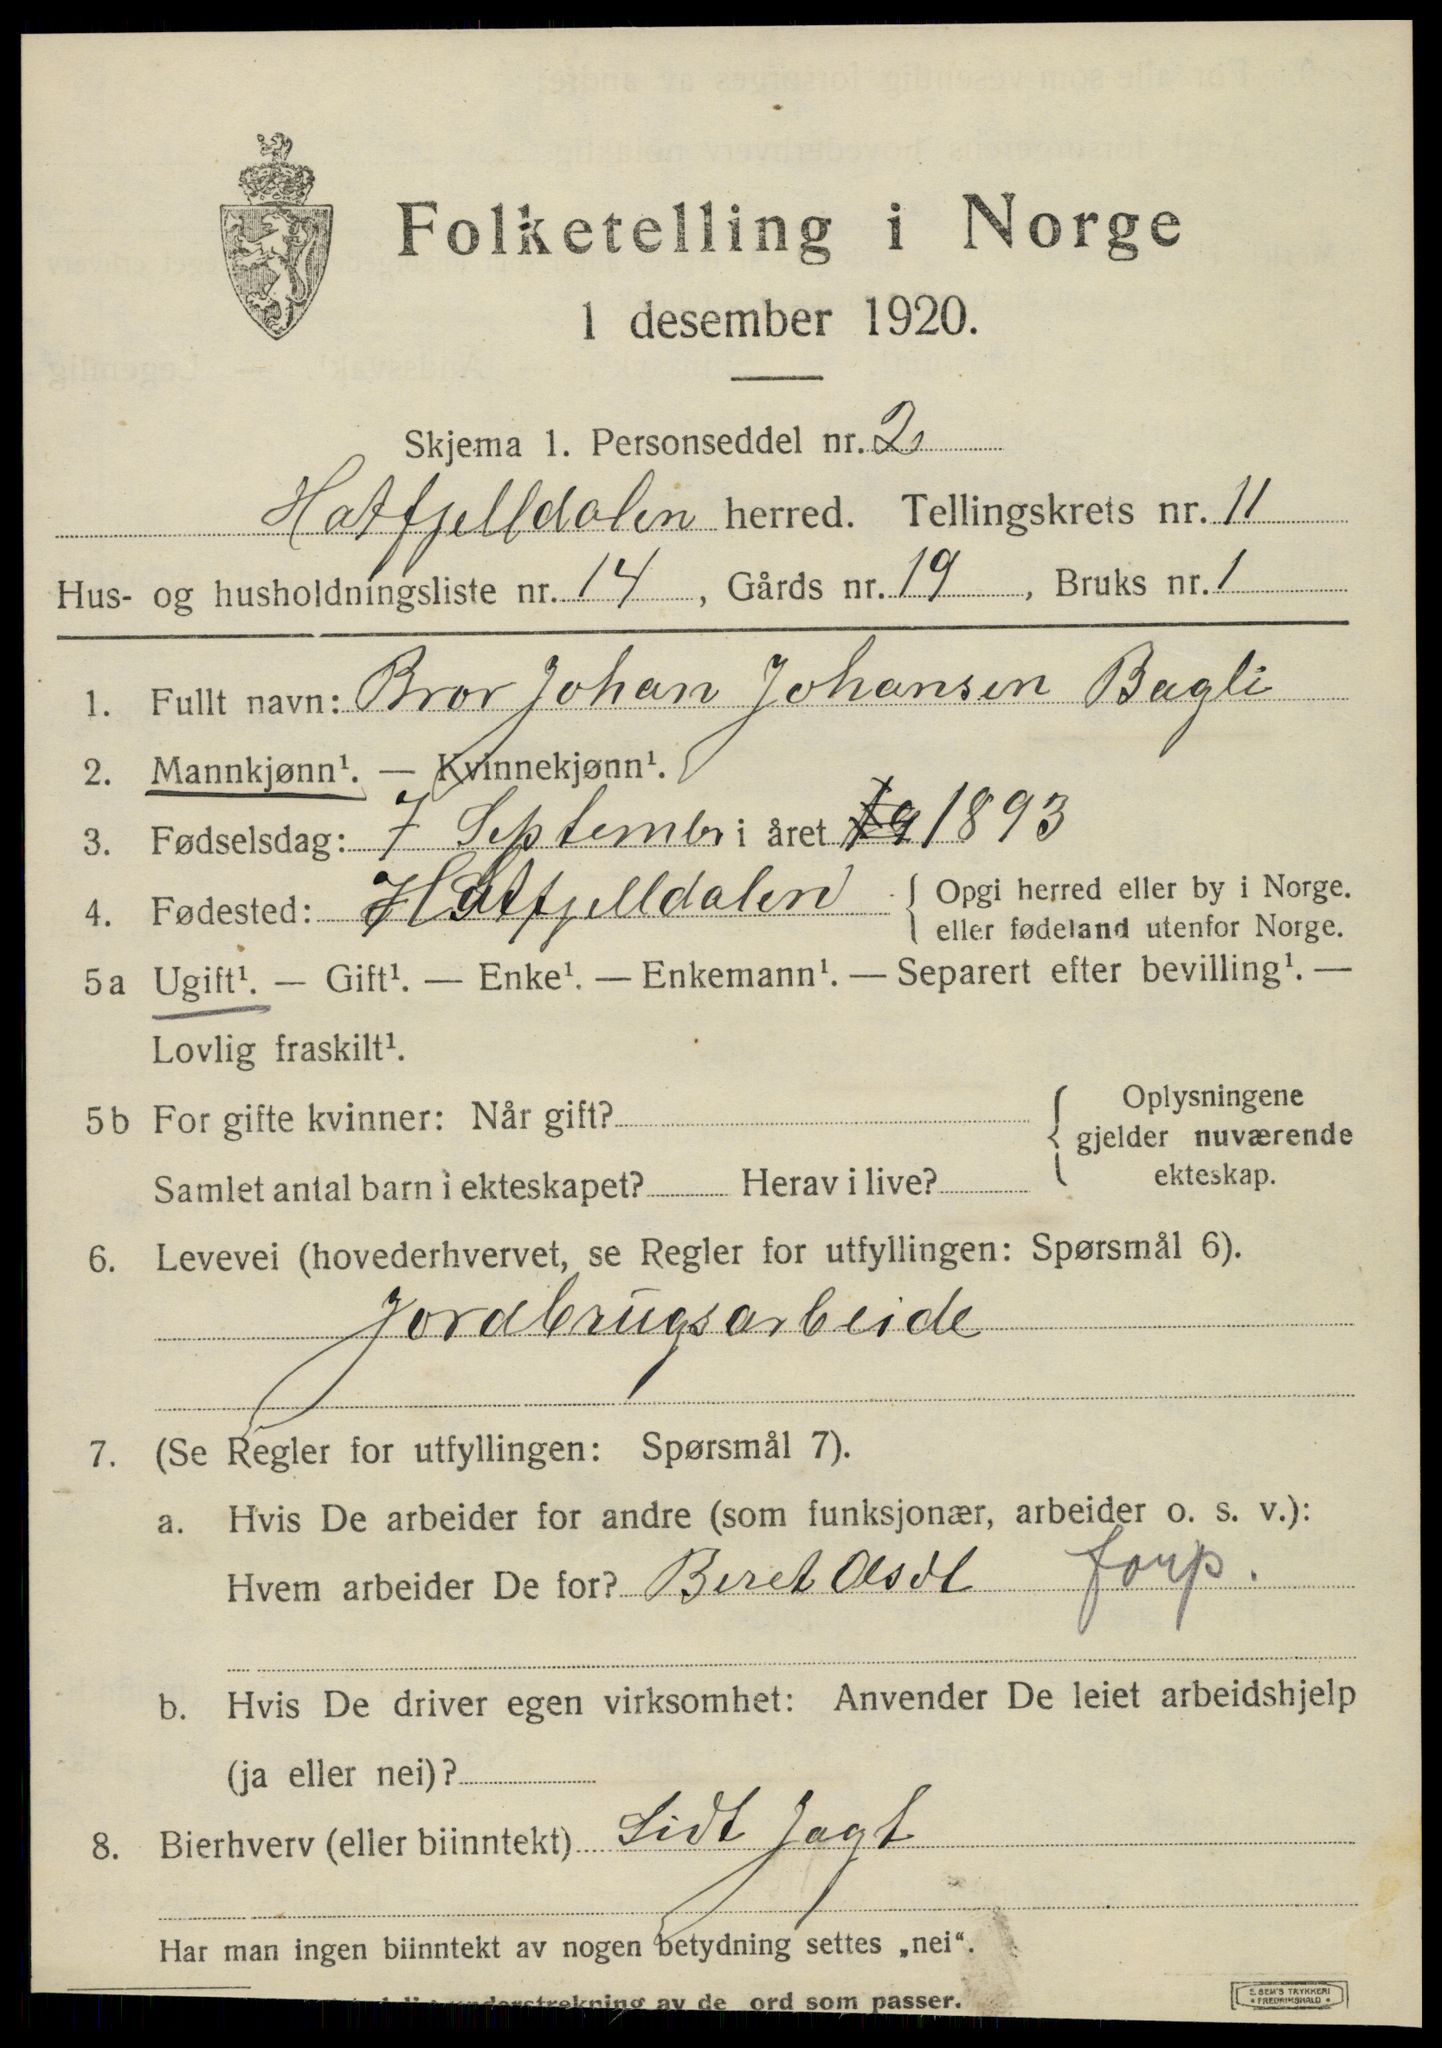 Folketelling i Norge
1 desember 1920.
Skjema 1. Personseddel nr. 2
Hatfjelldalen herred. Tellingskrets nr. 11
Hus- og husholdningsliste nr. 14, Gårds nr. 19, Bruks nr. 1
1. Fullt navn: Bror Johan Johansen Bagli
2. Mannkjønn¹. — Kvinnekjønn¹.
3. Fødselsdag: 7 Septembr i året 1893
4. Fødested: Hatfjelldalen { Opgi herred eller by i Norge.
eller fødeland utenfor Norge.
5a Ugift¹. — Gift¹. — Enke¹. — Enkemann¹. — Separert efter bevilling¹. —
Lovlig fraskilt¹.
5b For gifte kvinner: Når gift? { Oplysningene
gjelder nuværende
Samlet antal barn i ekteskapet? Herav i live? ekteskap.
6. Levevei (hovederhvervet, se Regler for utfyllingen: Spørsmål 6).
Jordbrugsarbeide
7. (Se Regler for utfyllingen: Spørsmål 7).
a. Hvis De arbeider for andre (som funksjonær, arbeider o. s. v.):
Hvem arbeider De for? Beret Olsdt forp.
b. Hvis De driver egen virksomhet: Anvender De leiet arbeidshjelp
(ja eller nei)?
8. Bierhverv (eller biinntekt) Lidt Jagt
Har man ingen biinntekt av nogen betydning settes „nei“.
understrekning av de ord som passer.
E. SEM'S TRYKKERI
• FREDRIKSHALD •